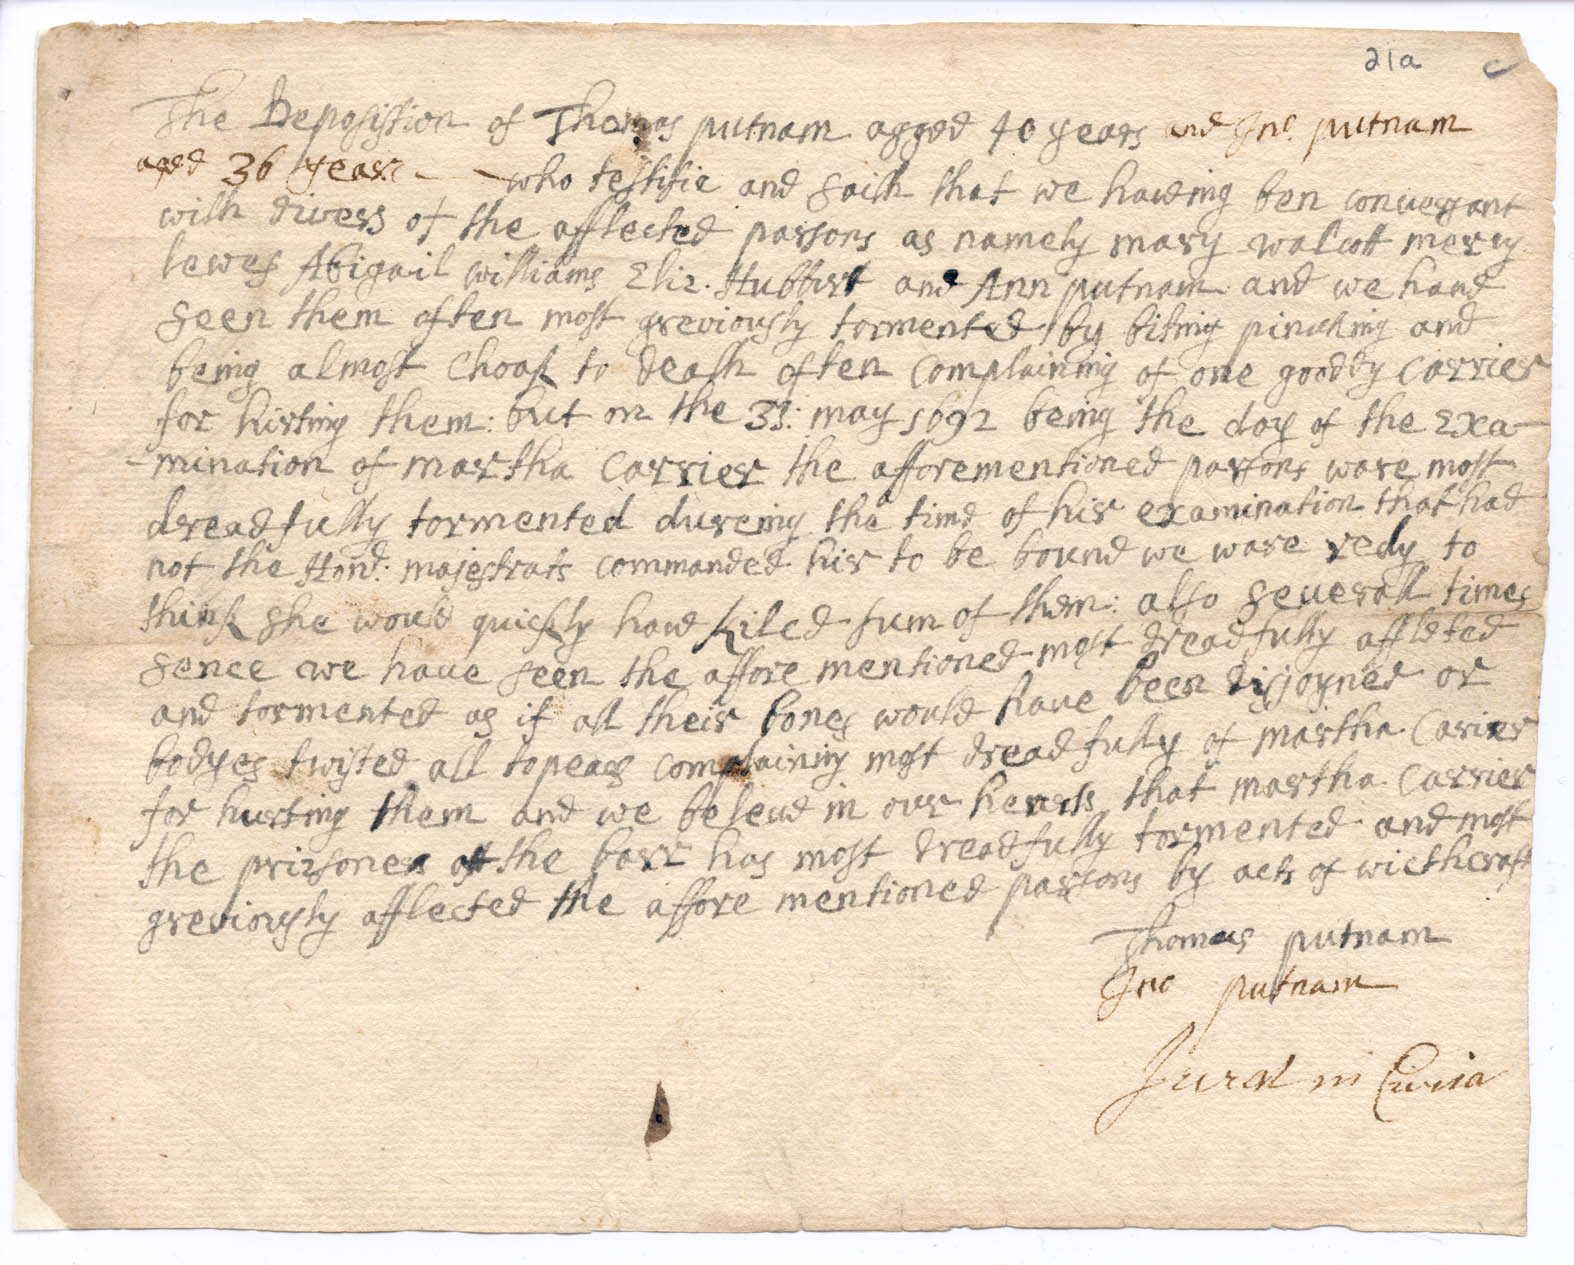 21a c
The Deposistion of Thomas putnam agged 40 years and Jno. putnam
aged 36 years who testifie and saith that we haveing ben conversant
with divers of the afflected parsons as namely mary walcott mercy
lewes Abigail williams Eliz. Hubburt and Ann putnam and we have
seen them often most greviously tormented by biting pinching and
being almost choak to death often complaining of one goody Carrier
for hirting them: but on the 31: may 1692 being the day of the Exa-
-mination of martha Carrier the afforementioned parsons ware most
dreadfully tormented dureing the time of hir examination that had
not the Hond: majestrats commanded hir to be bound we ware redy to
think she would quickly have kiled sum of them: also severall times
sence we have seen the affore mentioned most dreadfully affleted
and tormented as if all their bones would have been disjoyned or
bodyes twisted all topeaces complaining most dreadfully of martha Carier
for hurting them and we beleve in our hearts that martha Carrier
the prizsoner att the barr has most dreadfully tormented and most
greviously afflected the affore mentioned parsons by acts of wicthcraft
Thomas putnam
Jno putnam
Jurat in Curia